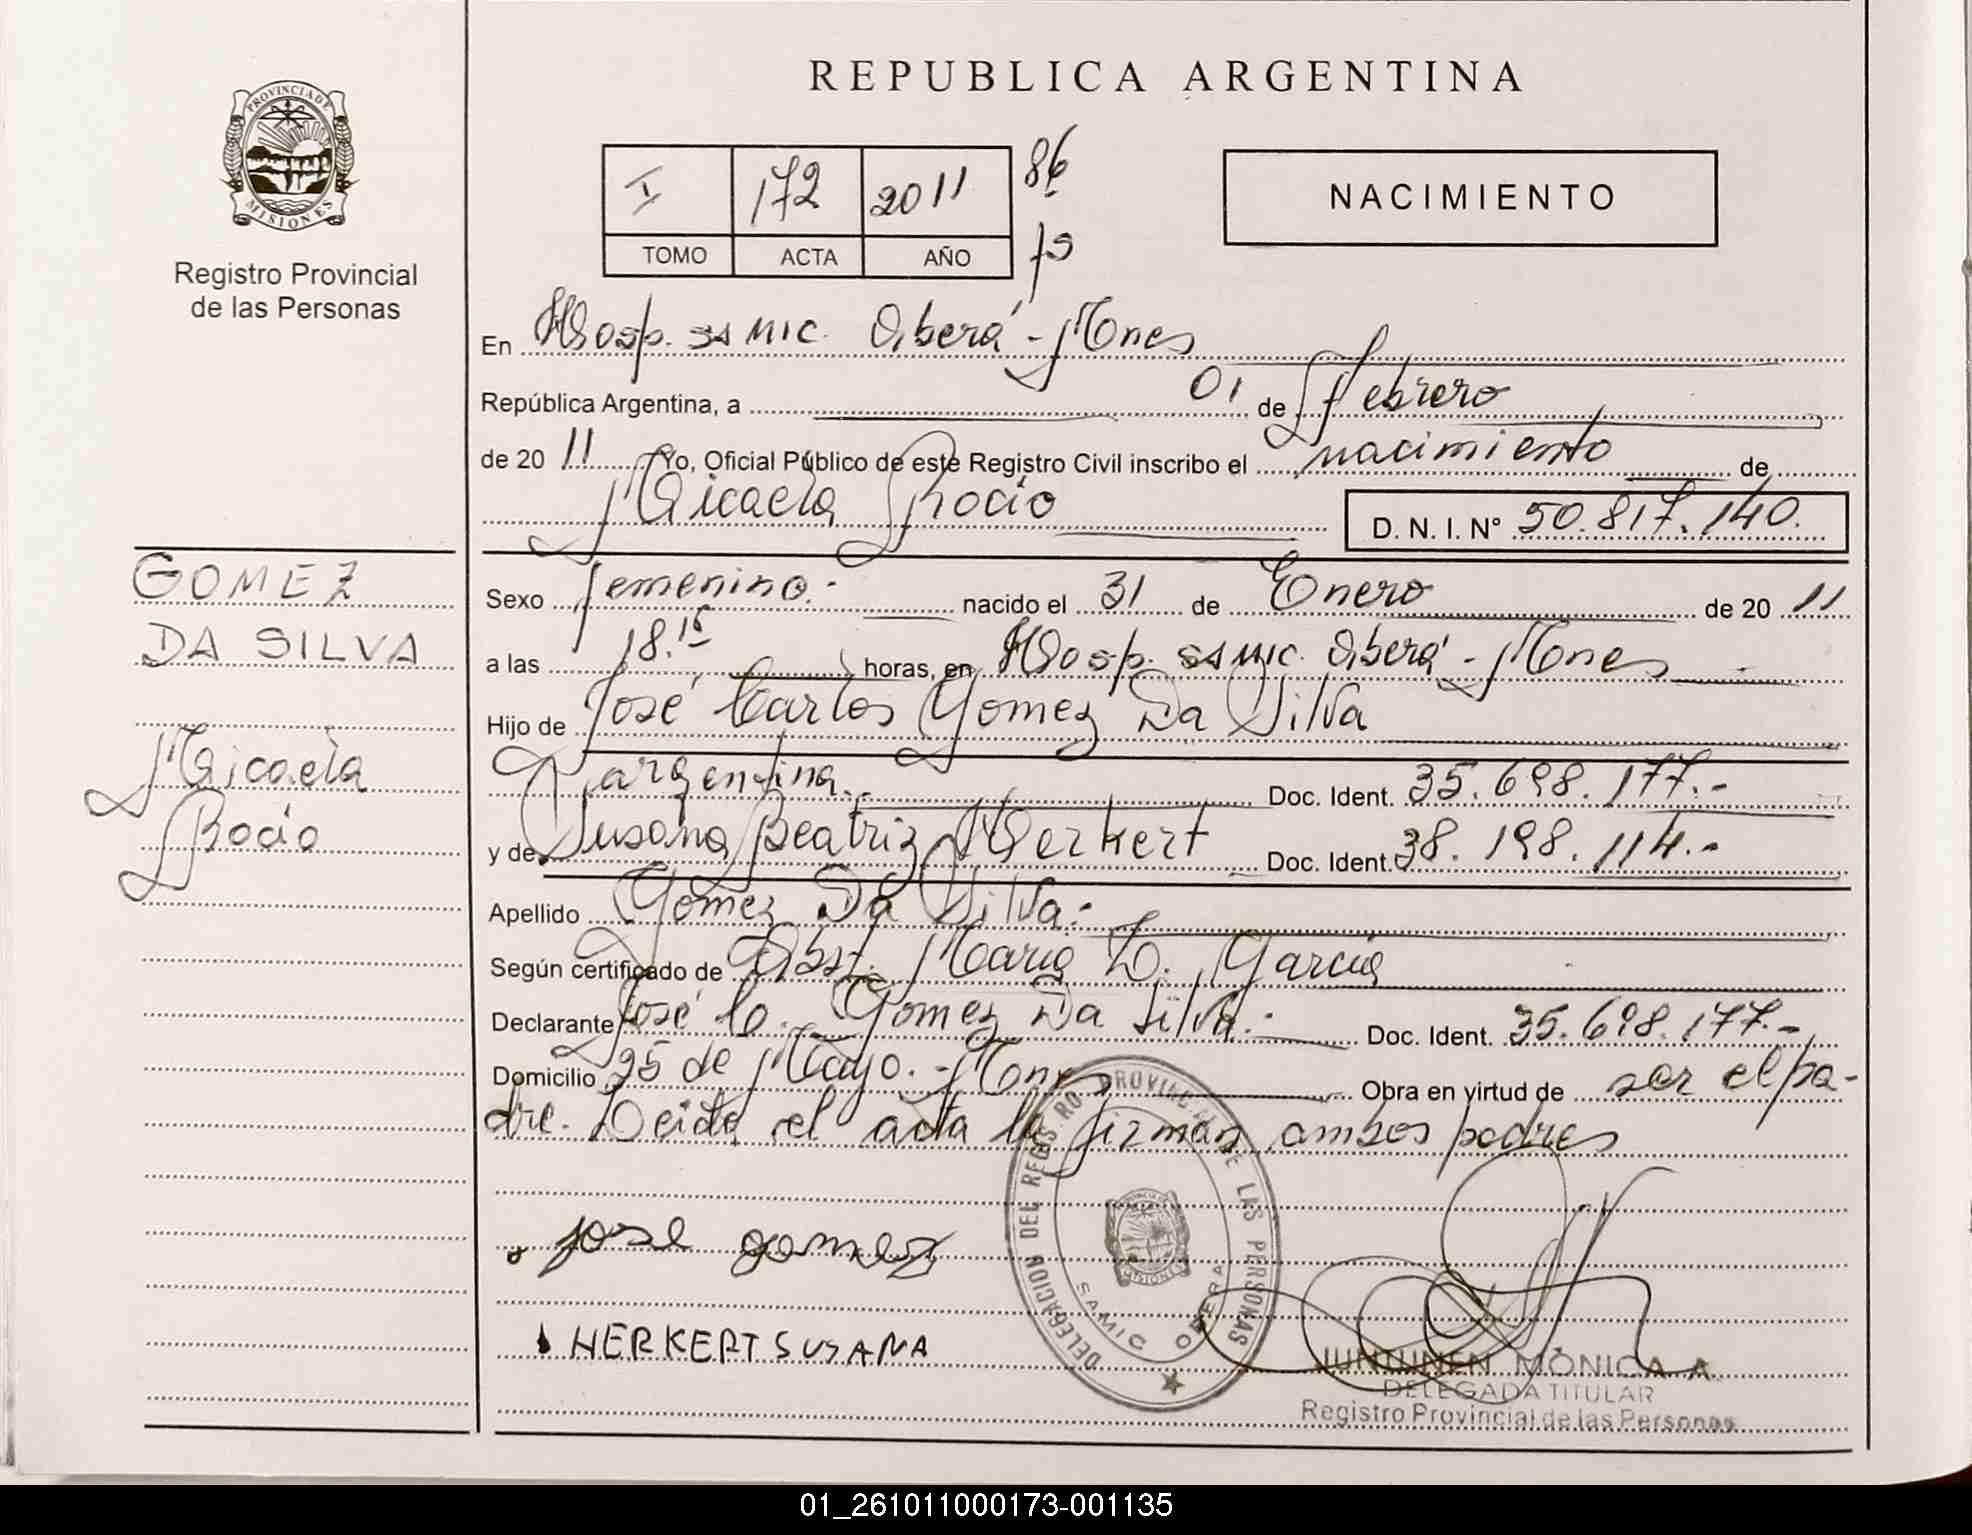 REPUBLICA ARGENTINA
PROVINCIA DE
MISIONES
Registro Provincial
de las Personas
I 172 2011 86
TOMO ACTA AÑO fs
NACIMIENTO
En Hosp. SAMIC. Oberá - Mnes
República Argentina, a 01 de Febrero
de 2011 Yo, Oficial Público de este Registro Civil inscribo el nacimiento de
Micaela Rocio D. N. I. N° 50.817.140.
GOMEZ
DA SILVA
Micaela
Rocio
Sexo femenino.- nacido el 31 de Enero de 2011
a las 18.15 horas, en Hosp. SAMIC. Oberá - Mnes
Hijo de José Carlos Gomez Da Silva
argentina.- Doc. Ident. 35.698.177.-
y de Susana Beatriz Herkert Doc. Ident. 38.198.114.-
Apellido Gomez Da Silva.-
Según certificado de Obst. Maria L. Garcia
Declarante José C. Gomez Da Silva.- Doc. Ident. 35.698.177.-
Domicilio 25 de Mayo.- Mnes Obra en virtud de ser el pa-
dre. Leida el acta la firman ambos padres
jose gomez
HERKERT SUSANA
DELEGACION DEL REGISTRO PROVINCIAL DE LAS PERSONAS
SAMIC OBERA
PROVINCIA DE
MISIONES
JUNTUNEN MONICA A.
DELEGADA TITULAR
Registro Provincial de las Personas
01_261011000173-001135